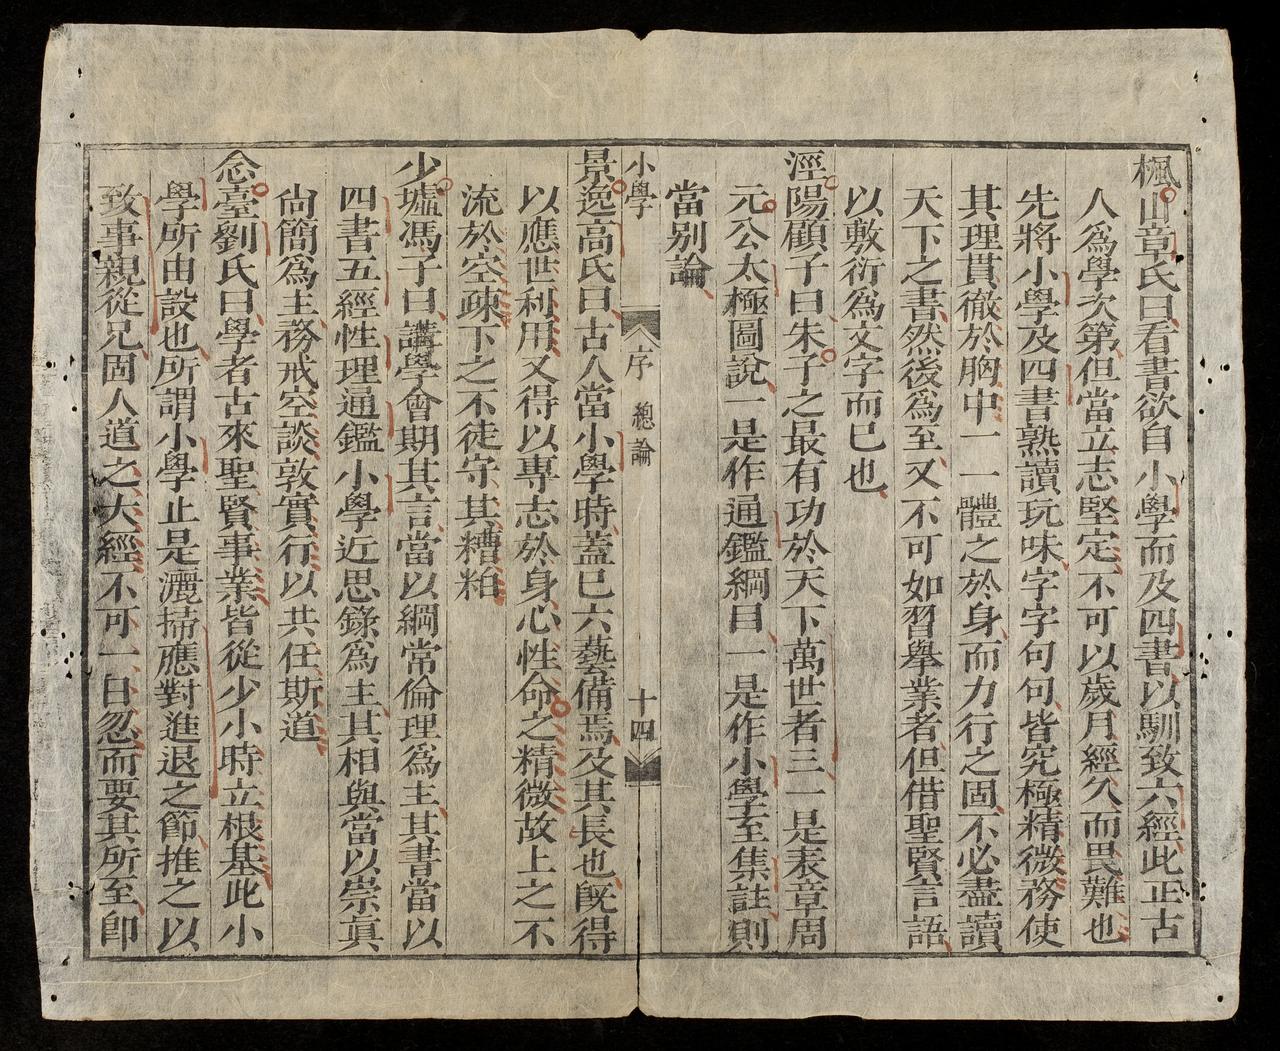 楓山章氏曰看書欲自小學而及四書以馴致六經此正古
人爲學次第但當立志堅定不可以歲月經久而畏難也
先將小學及四書熟讀玩味字字句句皆究極精微務使
其理貫徹於胸中一一體之於身而力行之固不必盡讀
天下之書然後爲至又不可如習舉業者但借聖賢言語
以敷衍爲文字而已也
涇陽顧子曰朱子之最有功於天下萬世者三一是表章周
元公太極圖說一是作通鑑綱目一是作小學至集註則
當別論
小學
序 總論
十四
景逸高氏曰古人當小學時蓋已六藝備焉及其長也旣得
以應世利用又得以專志於身心性命之精微故上之不
流於空疎下之不徒守其糟粕
少墟馮子曰講學會期其言當以綱常倫理爲主其書當以
四書五經性理通鑑小學近思錄爲主其相與當以崇眞
尙簡爲主務戒空談敦實行以共任斯道
念臺劉氏曰學者古來聖賢事業皆從少小時立根基此小
學所由設也所謂小學止是灑掃應對進退之節推之以
致事親從兄固人道之大經不可一日忽而要其所至卽